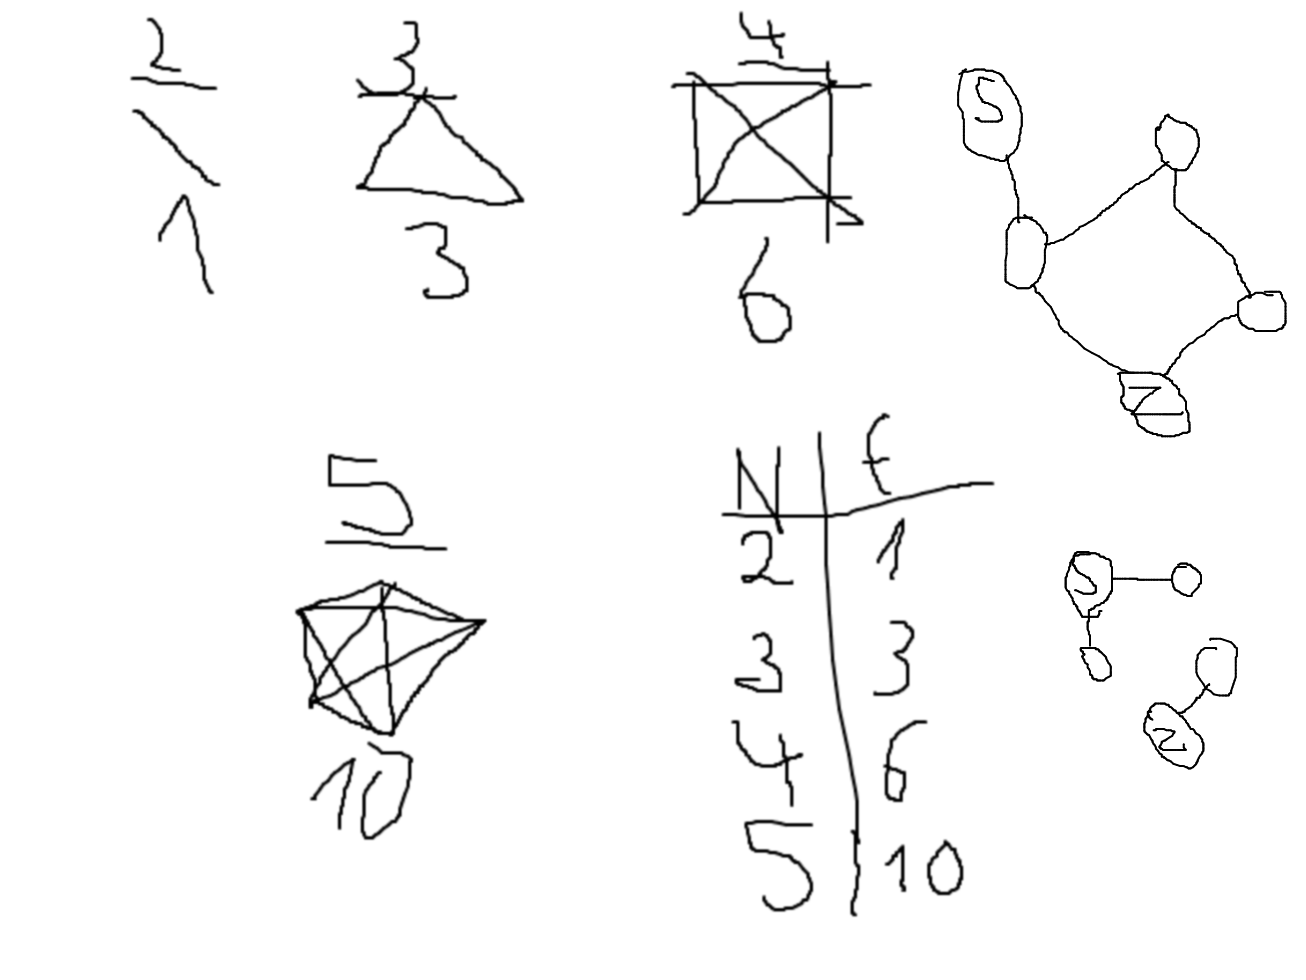 2
1
3
3
4
6
S
Z
5
10
N E
2 1
3 3
4 6
5 10
S
Z